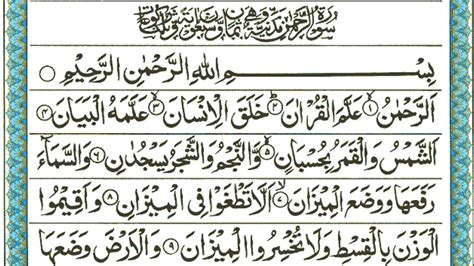 سُوْرَةُ الرَّحْمٰنِ مَدَنِيَّةٌ وَّهِيَ ثَمَانٌ وَّسَبْعُوْنَ اٰيَةً وَّثَلٰثُ رُكُوْعَاتٍ
بِسْمِ اللهِ الرَّحْمٰنِ الرَّحِيْمِ
اَلرَّحْمٰنُ ۙ﴿۱﴾ عَلَّمَ الْقُرْاٰنَ ؕ﴿۲﴾ خَلَقَ الْاِنْسَانَ ۙ﴿۳﴾ عَلَّمَهُ الْبَيَانَ ﴿۴﴾
اَلشَّمْسُ وَالْقَمَرُ بِحُسْبَانٍ ۪﴿۵﴾ وَّالنَّجْمُ وَالشَّجَرُ يَسْجُدٰنِ ﴿۶﴾ وَالسَّمَآءَ
رَفَعَهَا وَوَضَعَ الْمِيْزَانَ ۙ﴿۷﴾ اَلَّا تَطْغَوْا فِي الْمِيْزَانِ ﴿۸﴾ وَاَقِيْمُوا
الْوَزْنَ بِالْقِسْطِ وَلَا تُخْسِرُوا الْمِيْزَانَ ﴿۹﴾ وَالْاَرْضَ وَضَعَهَا